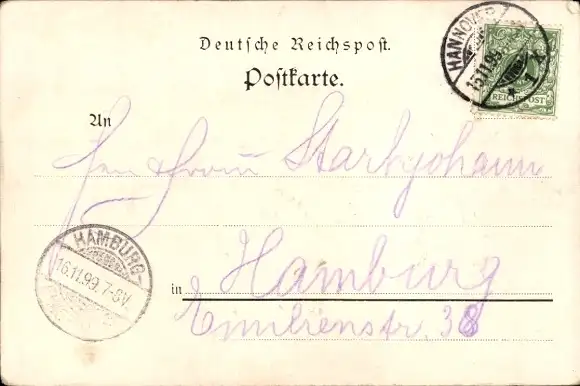 Deutsche Reichspost.
Postkarte.
HANNOVER
15.11.99
* 1 k
REICHSPOST
An
Starkjohann
HAMBURG
16.11.99. 7-8V.
in Hamburg
Emilienstr. 38